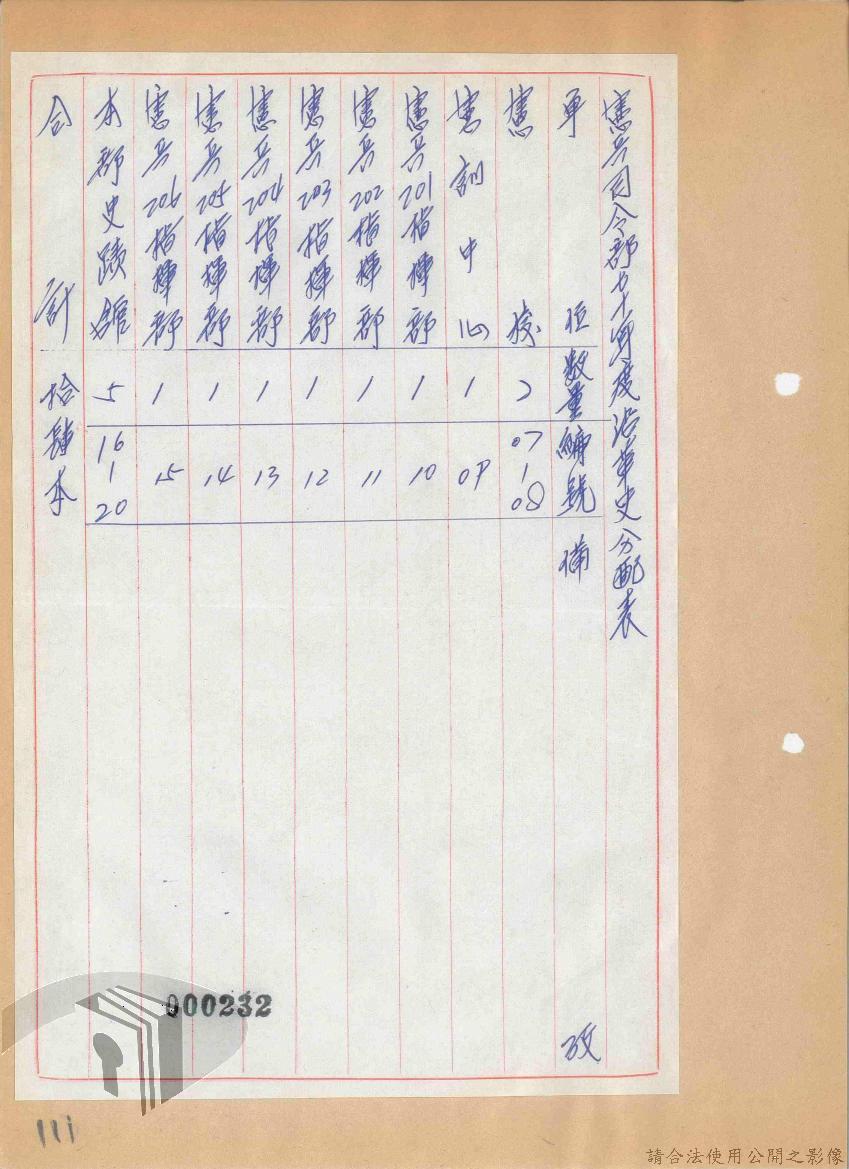 憲兵司令部九十年度沿革史分配表
單位 數量 編號 備 攷
憲校 2 07 | 08
憲訓中心 1 09
憲兵201指揮部 1 10
憲兵202指揮部 1 11
憲兵203指揮部 1 12
憲兵204指揮部 1 13
憲兵205指揮部 1 14
憲兵206指揮部 1 15
本部史蹟館 5 16 | 20
合計 拾肆本
000232
111
請合法使用公開之影像